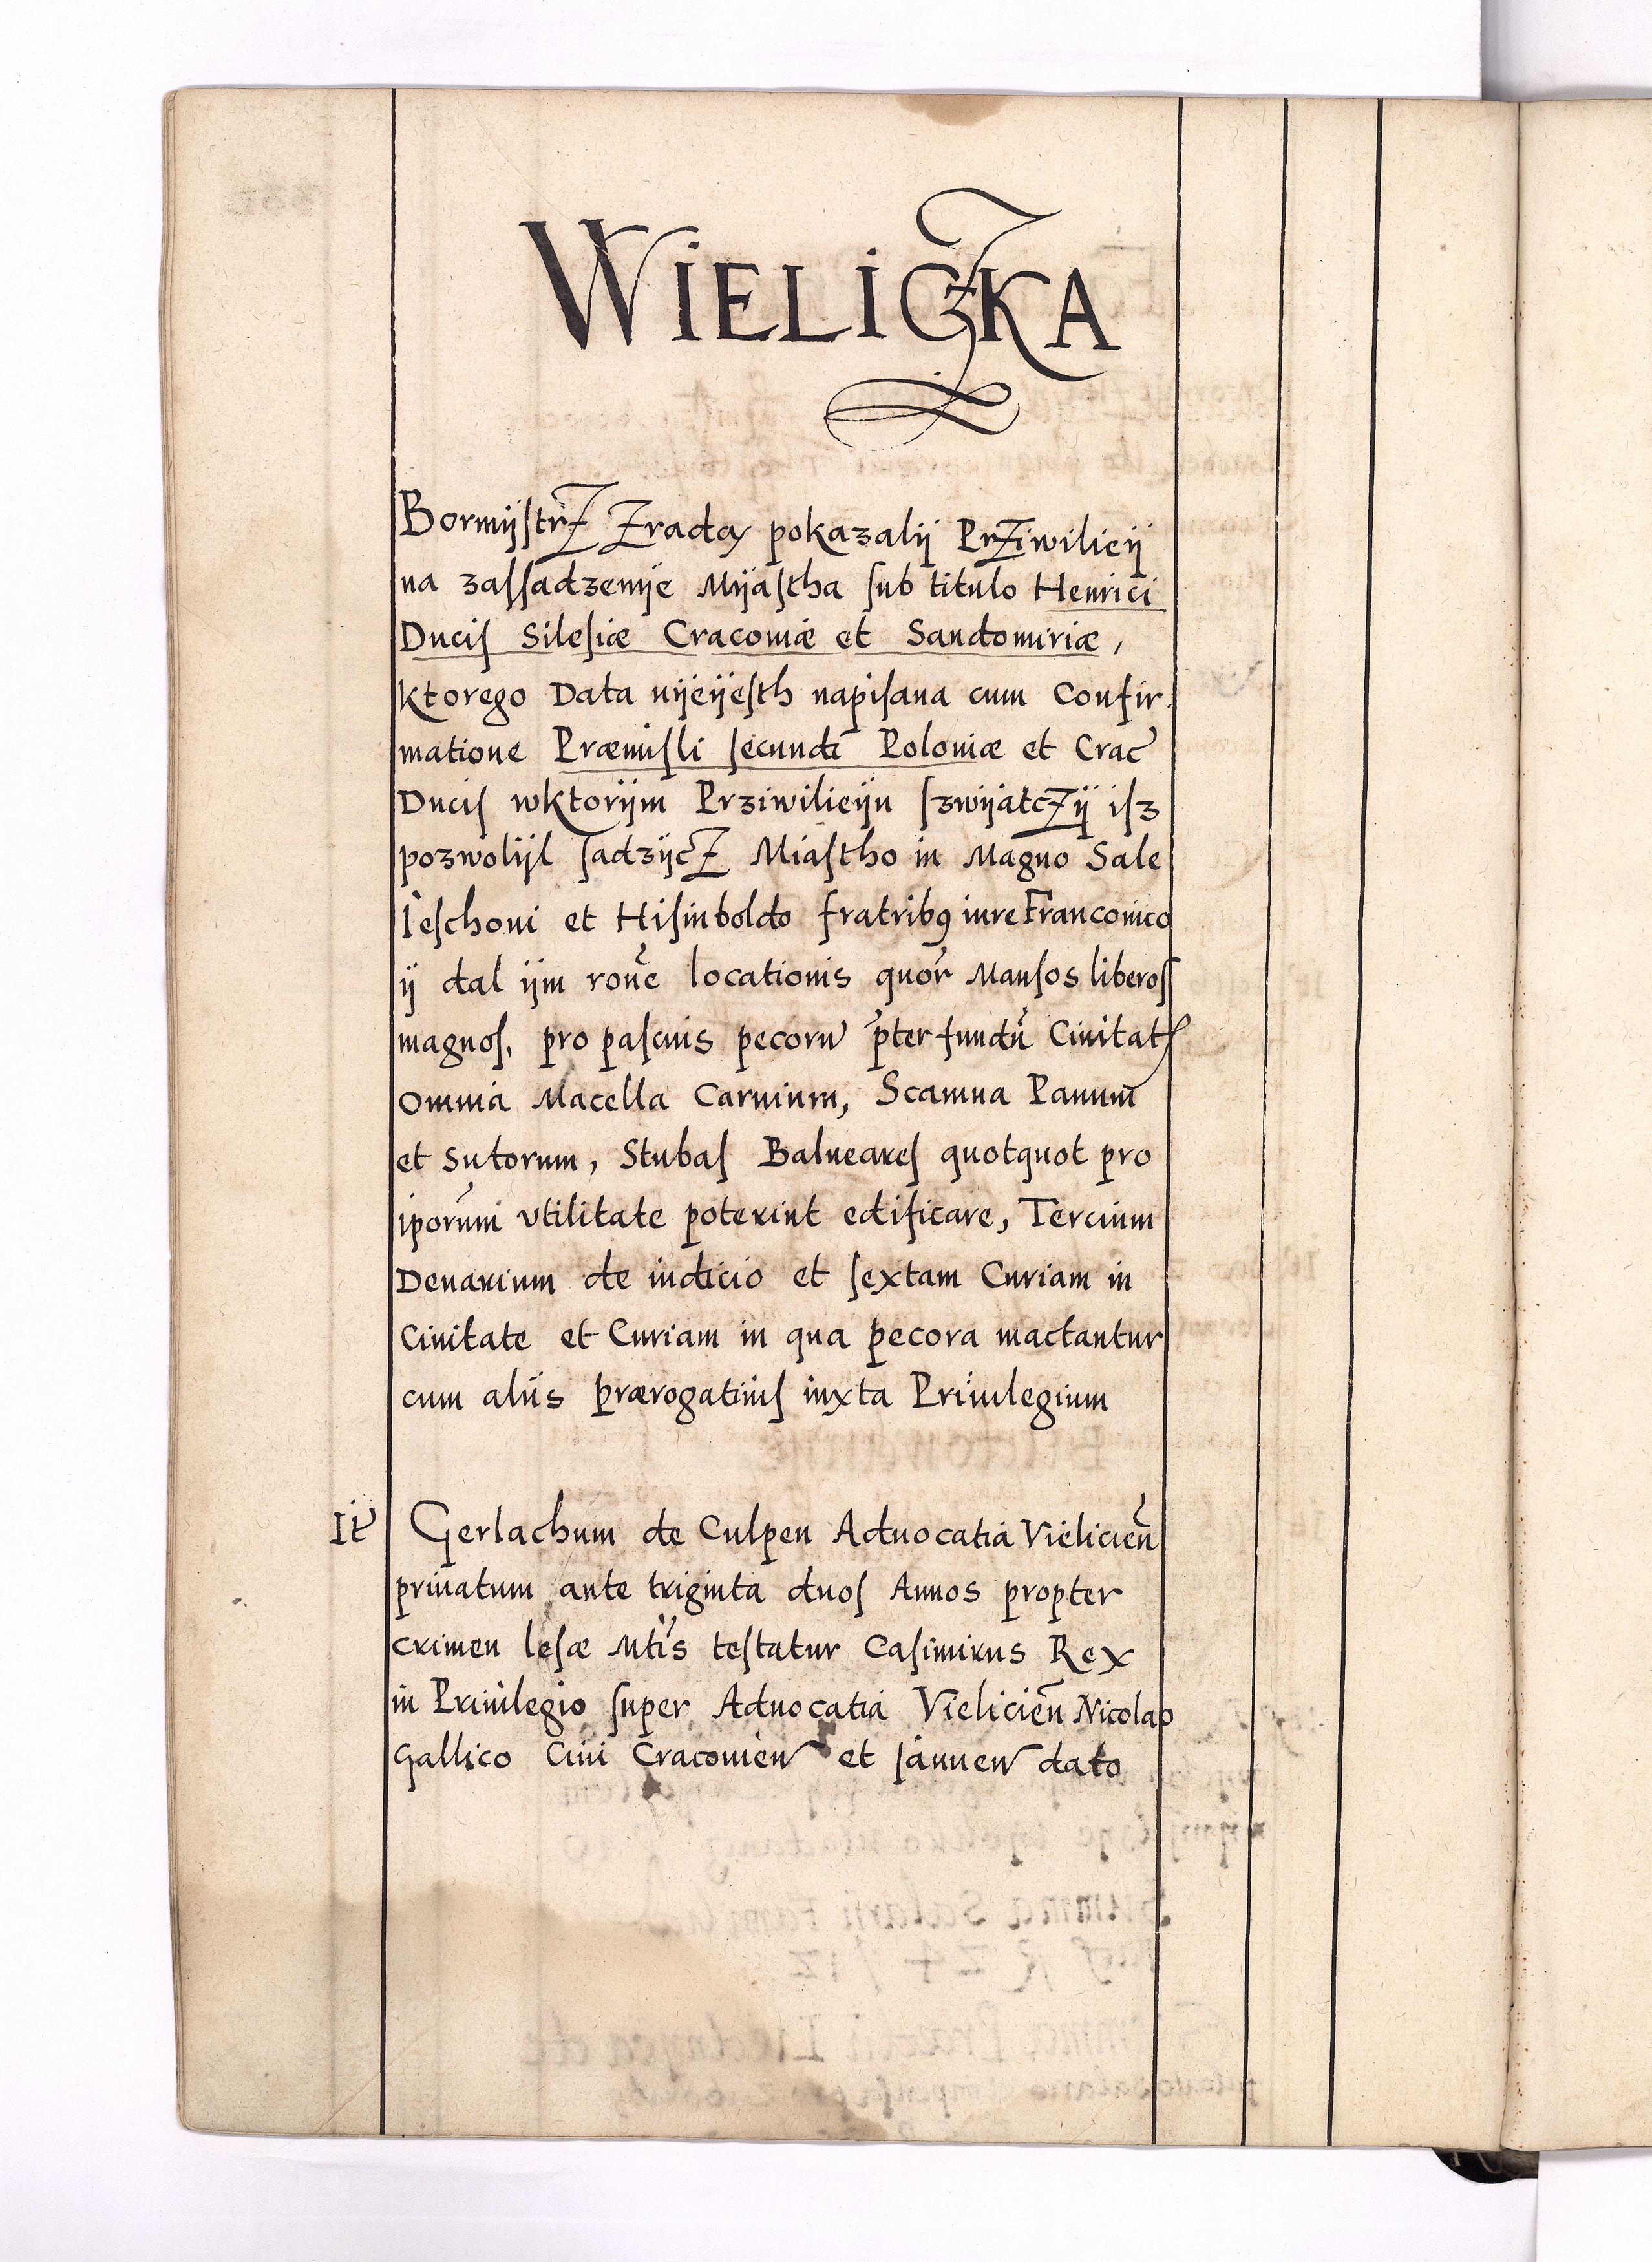 WIELICZKA
Bormÿſtrz Zradą pokazalÿ Prziwilieÿ
na zaſſadzenÿe Mÿaſtha ſub titulo Henrici
Duciſ Sileſiæ Cracouiæ et Sandomiriæ,
ktorego Data nÿeÿeſth napiſana cum Confir
matione Præmiſli ſecundi Poloniæ et Crac
Duciſ wktorÿm Prziwilieÿu ſzwÿatczÿ iſz
pozwolÿl ſadzÿcz Miaſtho in Magno Sale
Ieſchoni et Hiſinboldo fratribꝰ iure Franconico
ÿ dal ÿm rone locationis quor Manſos liberoſ
magnoſ, pro paſcuis pecoru pter fundu Ciuitatꝭ
omnia Macella Carnium, Scamna Panum
et Sutorum, Stubaſ Balneareſ quotquot pro
iporum vtilitate poterint edificare, Tercium
Denarium de iudicio et ſextam Curiam in
Ciuitate et Curiam in qua pecora mactantur
cum aliis prærogatiuiſ iuxta Priuilegium
It Gerlachum de Culpen Aduocatia Vielicien
priuatum ante triginta duoſ Annos propter
crimen leſæ Mtis teſtatur Caſimirus Rex
in Priuilegio ſuper Aduocatia Vielicien Nicolao
Gallico Ciui Cracouien et ſannen dato